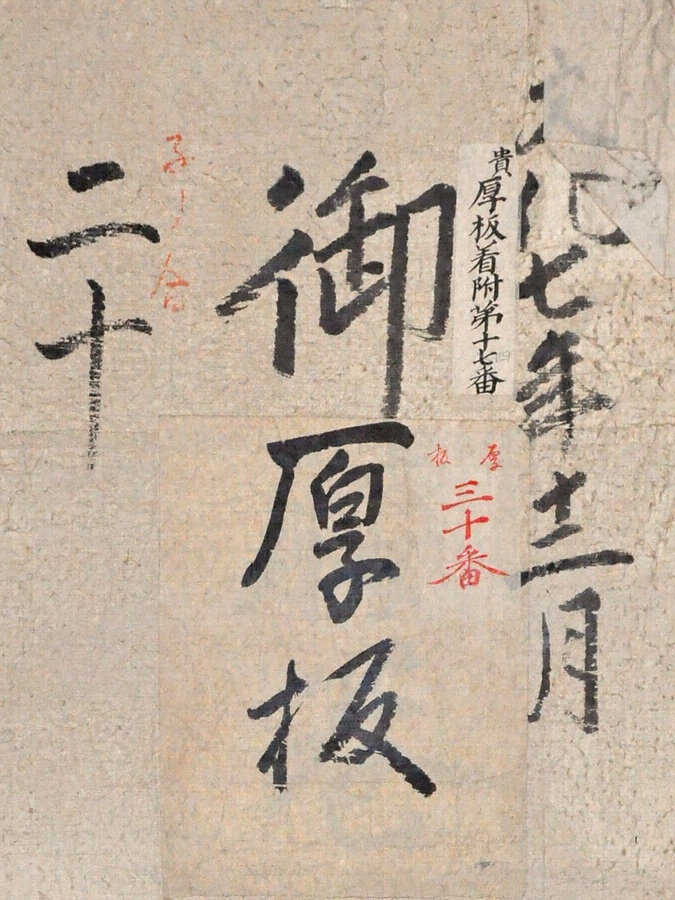 文化七年十二月
貴厚板着附第十七番
四
厚板
三十番
御厚板
二十